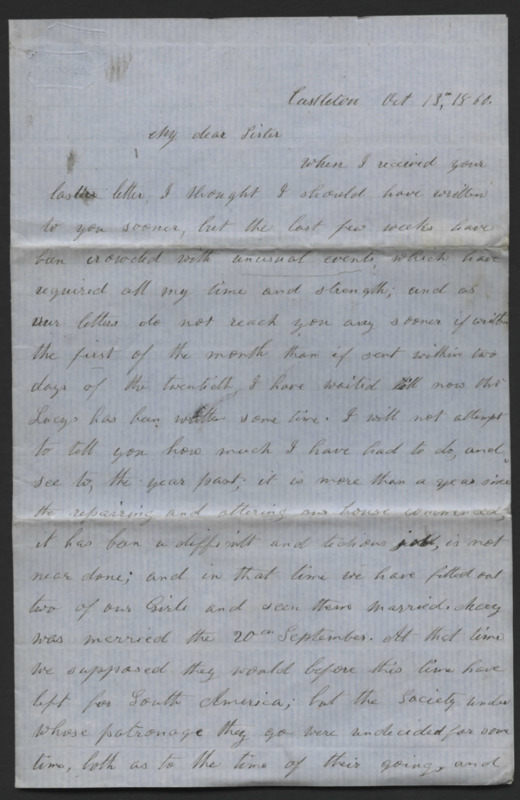 Castleton Oct 13th, 1860.
My dear Sister
When I received your
last letter, I thought I should have written
to you sooner, but the last few weeks have
been crowded with unusual events, which have
required all my time and strength; and as
our letters do not reach you any sooner if written
the first of the month than if sent within two
days of the twentieth I have waited till now tho
Lucys has been written some time. I will not attempt
to tell you how much I have had to do, and
see to, the year past; it is more than a year since
the repairing and altering our house commenced,
it has been a difficult and tedious job, is not
near done; and in that time we have fitted out
two of our Girls and seen them married. Mary
was married the 20th September. At that time
we supposed they would before this time have
left for South America; but the Society under
whose patronage they go were undecided for some
time, both as to the time of their going, and